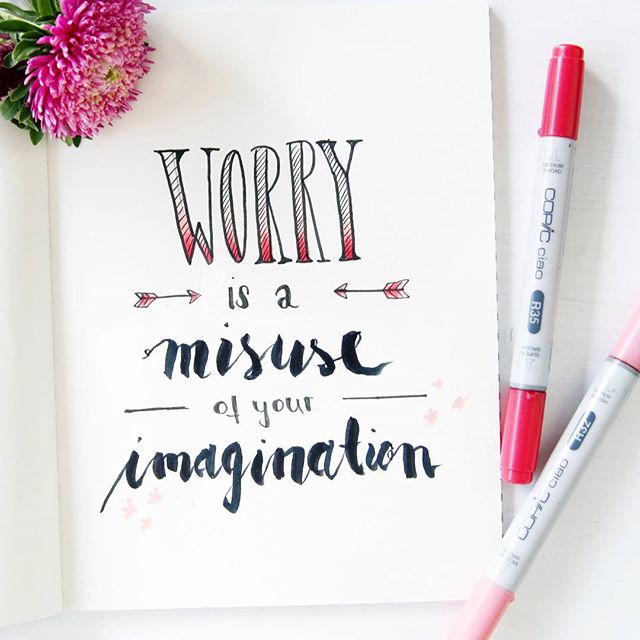 WORRY
is a
misuse
of your
imagination
COPIC ciao
R35
COPIC ciao
R32